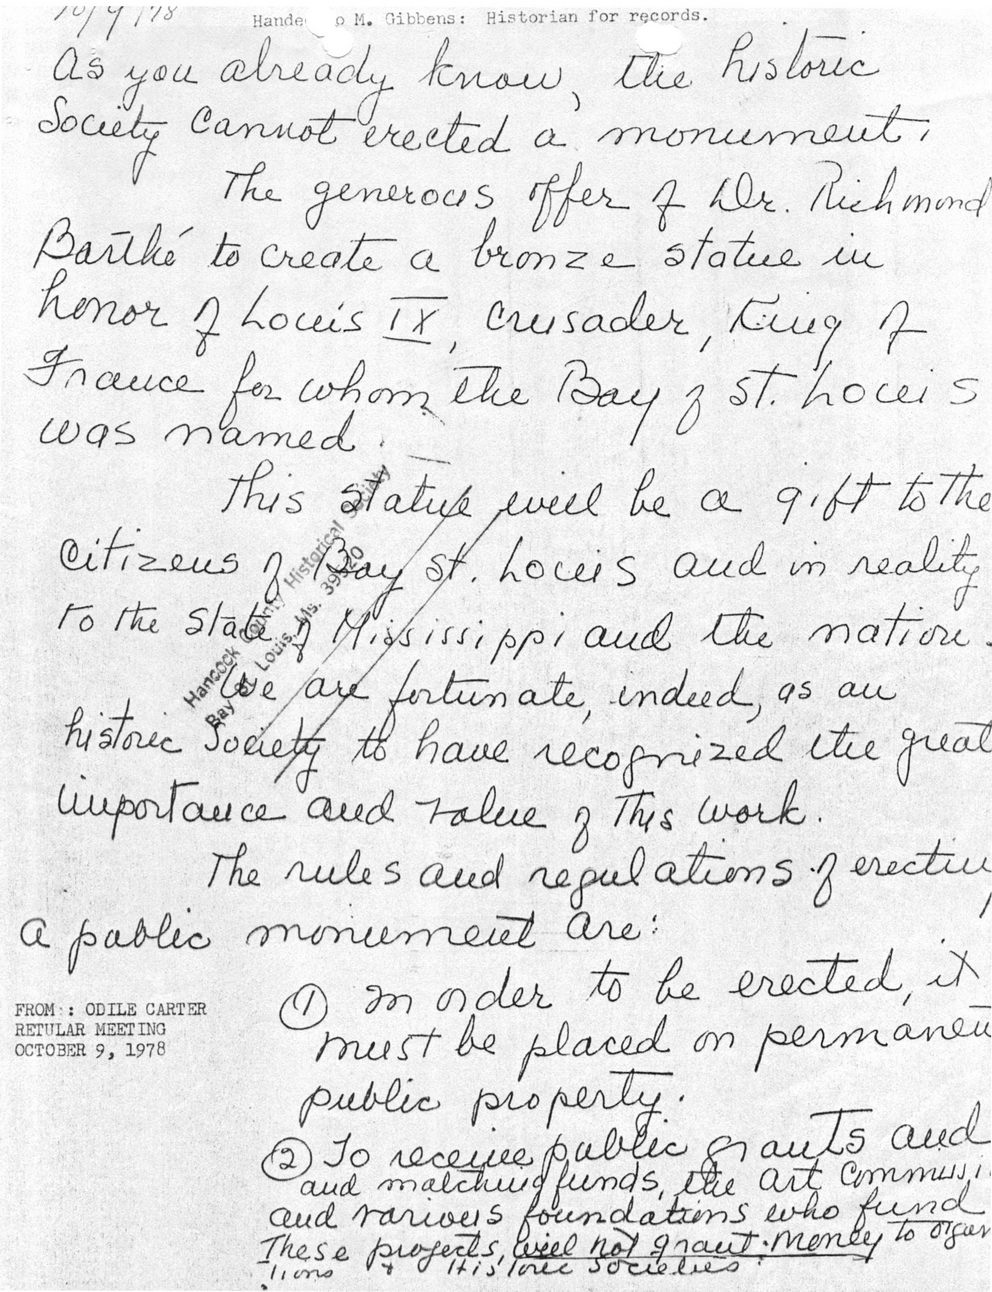 10/9/78
Hande o M. Gibbens: Historian for records.
As you already know, the historic
Society cannot erected a monument.
The generous offer of Dr. Richmond
Barthé to create a bronze statue in
honor of Louis IX, Crusader, King of
France for whom the Bay of St. Louis
was named.
This statue will be a gift to the
citizens of Bay St. Louis and in reality
to the State of Mississippi and the nation.
We are fortunate, indeed, as an
historic Society to have recognized the great
importance and value of this work.
The rules and regulations of erectin
a public monument are:
① In order to be erected, it
must be placed on permanen
public property.
② To receive public grants and
and matching funds, the Art Commissi
and various foundations who fund
These projects, will not grant money to organ
tions + Historic Societies.
Hancock County Historical Society
Bay St. Louis, Ms. 39520
FROM : ODILE CARTER
RETULAR MEETING
OCTOBER 9, 1978